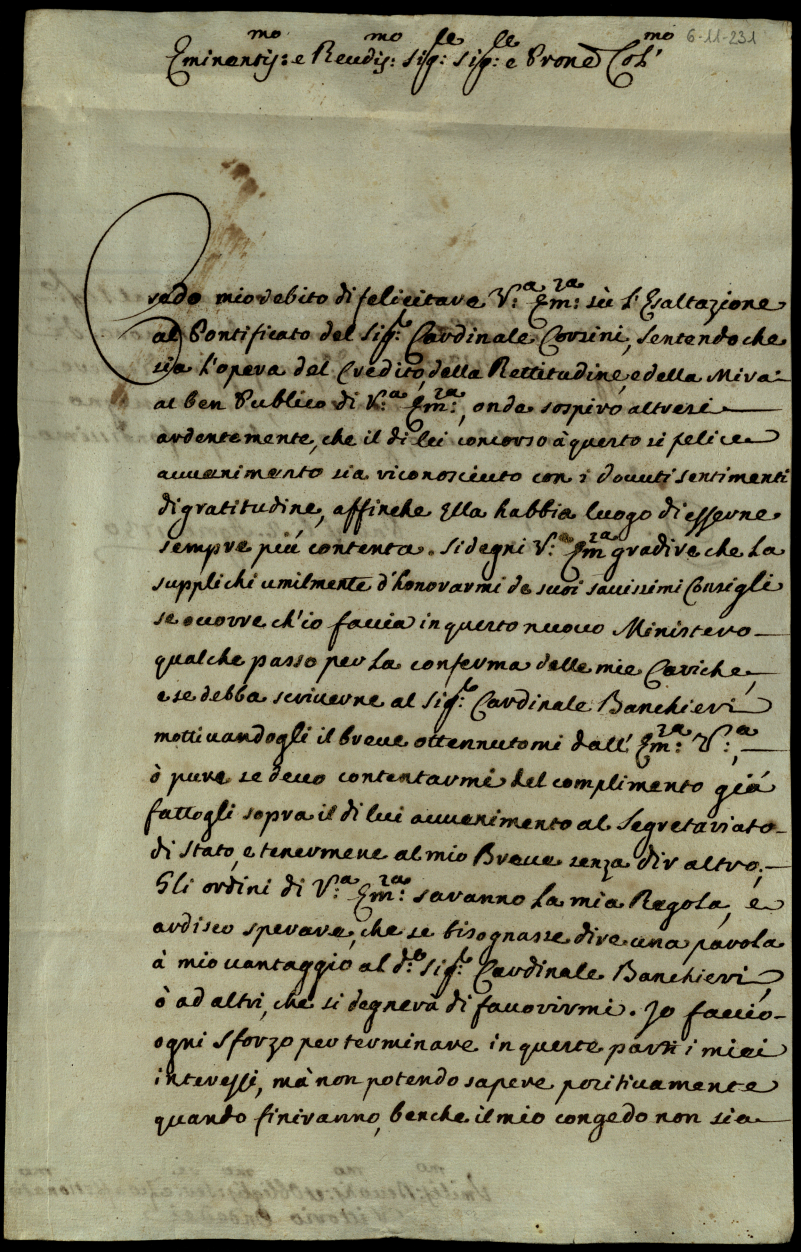 6-11-231
Eminentis:mo e Reudis:mo Sig:le Sig:le e Prone Col:mo
Credo mio debito di felicitare V:a Em:za sù l'Esaltazione
al Pontificato del Sig:le Cardinale Corsini, sentendo che
sia l'opera del Credito, della Rettitudine, e della Mira
al ben Publico di V:a Em:za, onde sospiro altresi
ardentemente, che il di lei concorso à questo si felice
auuenimento sia riconosciuto con i douuti sentimenti
di gratitudine, affinche Ella habbia luogo di esserne
sempre più contenta. Si degni V:a Em:za gradire che La
supplichi umilmente d'honorarmi de suoi sauissimi Consigli
se occorre ch'io faccia in questo nuouo Ministero
qualche passo per La conferma delle mie Cariche,
e se debba scriuerne al Sig:le Cardinale Banchieri
mottiuandogli il breue ottennutomi dall' Em:za V:a,
ò pure se deuo contentarmi del complimento già
fattogli sopra il di lui auuenimento al Segretariato
di Stato, e tenermene al mio Breue senza dir altro;
Gli ordini di V:a Em:za saranno La mia Regola, e
ardisco sperare, che se bisognasse dire una parola
à mio uantaggio al d:o Sig:le Cardinale Banchieri,
ò ad altri, che si degnerà di fauorirmi. Io faccio
ogni sforzo per terminare in queste parti i miei
interessi, mà non potendo sapere positiuamente
quando finiranno, benche il mio congedo non sia